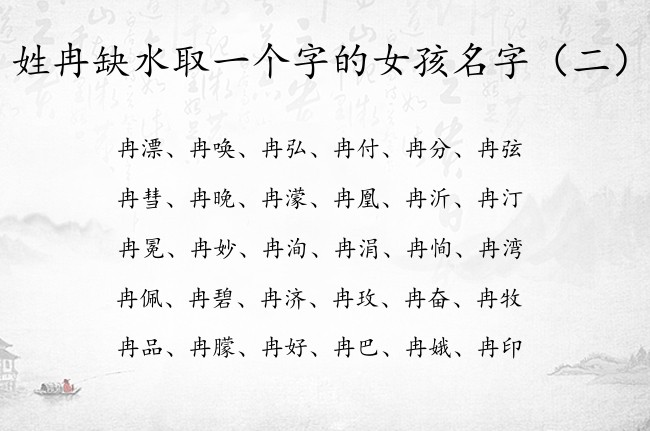 姓冉缺水取一个字的女孩名字（二）
冉漂、冉唤、冉弘、冉付、冉分、冉弦
冉彗、冉晚、冉濛、冉凰、冉沂、冉汀
冉冕、冉妙、冉洵、冉涓、冉恂、冉湾
冉佩、冉碧、冉济、冉玫、冉奋、冉牧
冉品、冉朦、冉好、冉巴、冉娥、冉印